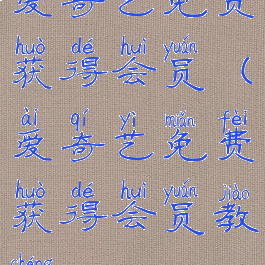 爱奇艺免费
huò dé huì yuán
获得会员（
ài qí yì miǎn fèi
爱奇艺免费
huò dé huì yuán jiào
获得会员教
chéng